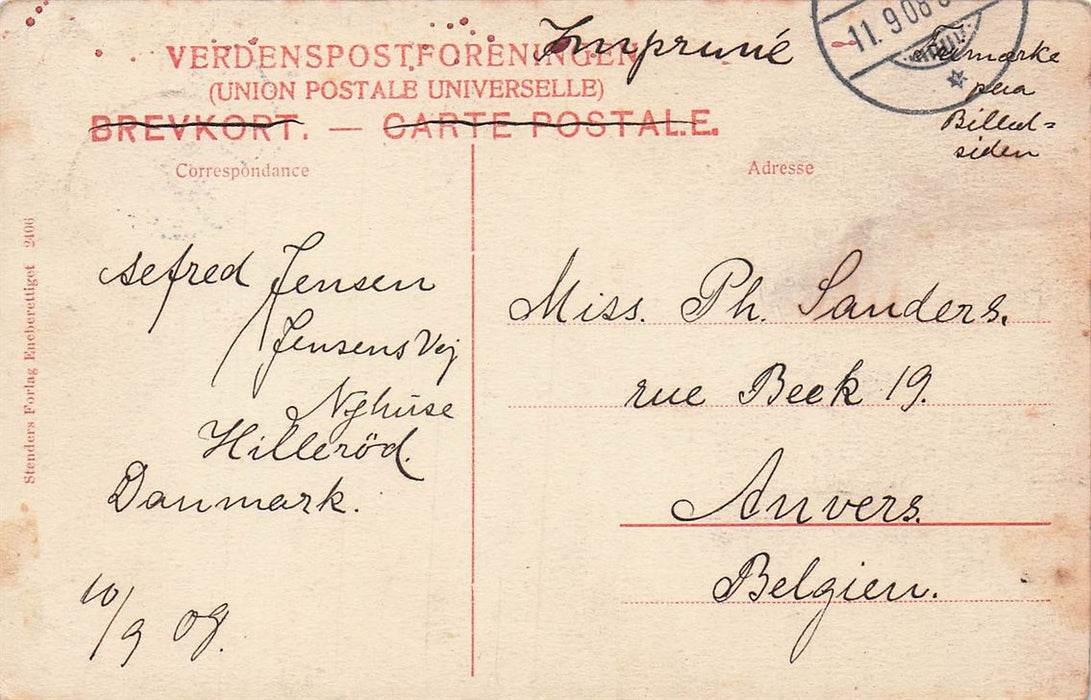 VERDENSPOSTFORENINGEN
Imprimé
(UNION POSTALE UNIVERSELLE)
BREVKORT. — CARTE POSTALE.
11.9.08
Frimærke
paa
Billed=
siden
Correspondance
Adresse
Stenders Forlag Eneberettiget 2406
Alfred Jensen
Jensens Vej
Nyhuse
Hilleröd.
Danmark.
10/9 08.
Miss. Ph. Sanders.
rue Beek 19.
Anvers.
Belgien.